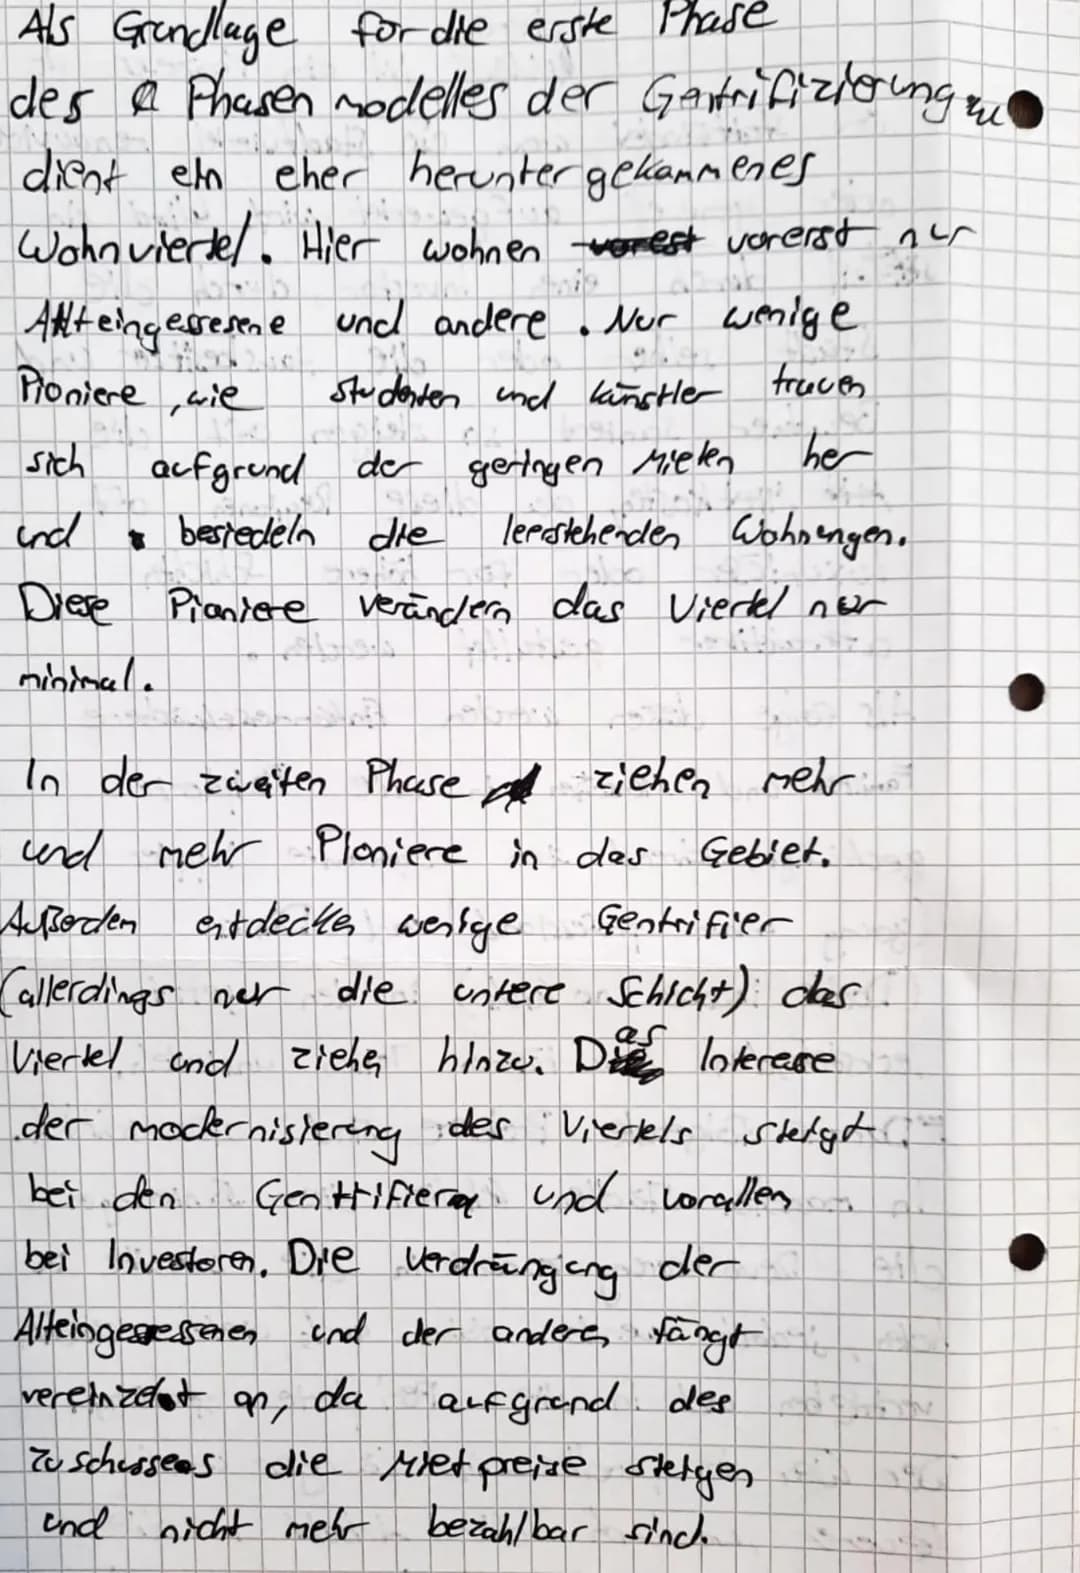 Als Grundlage für die erste Phase
des Phasen modelles der Gentrifizierung
dient ein eher heruntergekommenes
Wohnviertel. Hier wohnen vorerst nur
Alteingesesene und andere. Nur wenige
Pioniere, wie Studenten und Künstler trauen
sich aufgrund der geringen Mieten her
und besiedeln die leerstehenden Wohnungen.
Diese Pioniere verändern das Viertel nur
minimal.
In der zweiten Phase ziehen mehr
und mehr Pioniere in das Gebiet.
Außerden entdecken wenige Gentrifier
(allerdings nur die untere Schicht) das
Viertel und ziehen hinzu. Das Interesse
der modernisierung des Viertels steigt
bei den Gentrifiern und vorallen
bei Investoren. Die Verdrängung der
Alteingesessenen und der anderen fängt
vereinzelt an, da aufgrund des
Zuschusses die Mietpreise steigen
und nicht mehr bezahlbar sind.